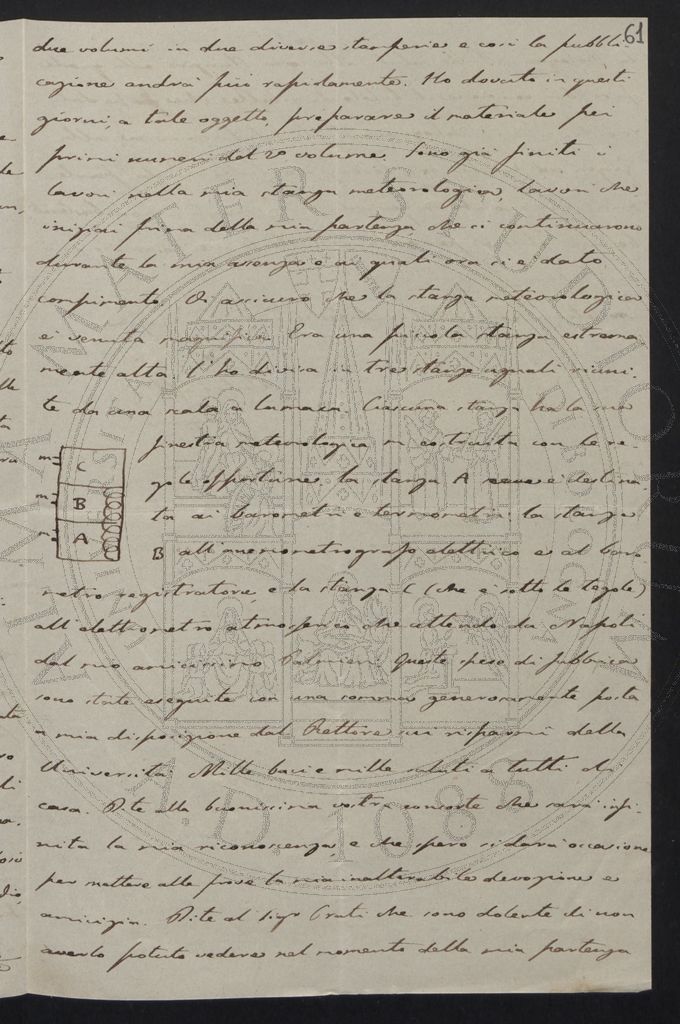 61
due volumi in due diverse stamperie e così la pubbli-
cazione andrà più rapidamente. Ho dovuto in questi
giorni, a tale oggetto, preparare il materiale pei
primi numeri del 2º volume. Sono già finiti i
lavori nella mia stanza meteorologica, lavori che
iniziai prima della mia partenza, che si continuarono
durante la mia assenza e ai quali ora si è dato
compimento. Vi assicuro che la stanza meteorologica
è venuta magnifica. Era una piccola stanza estrema-
mente alta: l'ho divisa in tre stanze uguali riuni-
te da una scala a lumaca. Ciascuna stanza ha la sua
finestra meteorologica costruita con le re-
gole opportune. la stanza A è destina
ta ai barometri e termometri: la stanza
B all'anemometrografo elettrico e al baro-
metro registratore e la stanza C (che è sotto le tegole)
all'elettrometro atmosferico che attendo da Napoli
dal mio amicissimo Palmieri. Queste spese di fabbrica
sono state eseguite con una somma generosamente posta
a mia disposizione dal Rettore sui risparmi della
Università. Mille baci e mille saluti a tutti di
casa. Dite alla buonissima vostra consorte che sarà infi-
nita la mia riconoscenza, e che spero si darà occasione
per mettere alla prova la mia inalterabile devozione e
amicizia. Dite al Sigr che sono dolente di non
averlo potuto vedere nel momento della mia partenza
C
B
A
m
m
m
ALMA MATER STUDIORUM
A.D. 1088